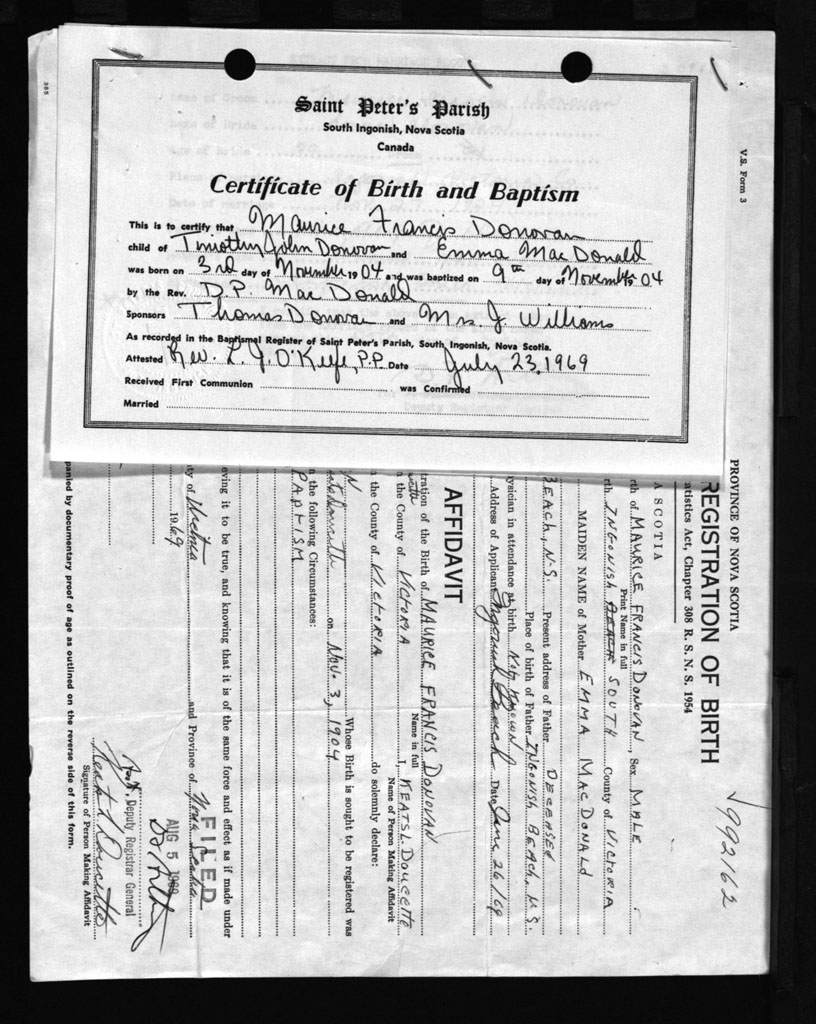 Saint Peter's Parish
South Ingonish, Nova Scotia
Canada
Certificate of Birth and Baptism
This is to certify that Maurice Francis Donovan
child of Timothy John Donovan and Emma Mac Donald
was born on 3rd day of November 1904 and was baptized on 9th day of November 1904
by the Rev. D.P. Mac Donald
Sponsors Thomas Donovan and Mrs. J. Williams
As recorded in the Baptismal Register of Saint Peter's Parish, South Ingonish, Nova Scotia.
Attested Rev. L. J. O'Keefe, P.P. Date July 23, 1969
Received First Communion was Confirmed
Married
V.S. Form 3
√992162
PROVINCE OF NOVA SCOTIA
REGISTRATION OF BIRTH
atistics Act, Chapter 308 R. S. N. S. 1954
A SCOTIA
rth of MAURICE FRANCIS DONOVAN, Sex MALE
Print Name in full
rth INGONISH BEACH SOUTH County of VICTORIA
MAIDEN NAME of Mother EMMA MACDONALD
BEACH, N.S. Present address of Father DECEASED
Place of birth of Father INGONISH BEACH, N.S.
ysician in attendance at birth NOT KNOWN
Address of Applicant Ingonish Beach Date June 26/69
AFFIDAVIT
tration of the Birth of MAURICE FRANCIS DONOVAN
Name in full
I, KEATS L. DOUCETTE
Name of Person Making Affidavit
n the County of VICTORIA
the County of VICTORIA do solemnly declare:
Whose Birth is sought to be registered was
on Nov. 3, 1904
n the following Circumstances:
BAPTISM
eving it to be true, and knowing that it is of the same force and effect as if made under
ty of Victoria and Province of Nova Scotia
1969
FILED
AUG 5 1969
Deputy Registrar General
Signature of Person Making Affidavit
panied by documentary proof of age as outlined on the reverse side of this form.